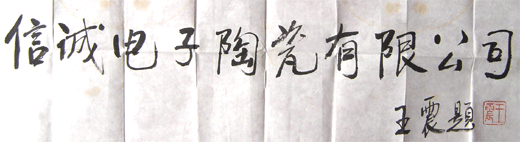 信诚电子陶瓷有限公司
王震题
王震